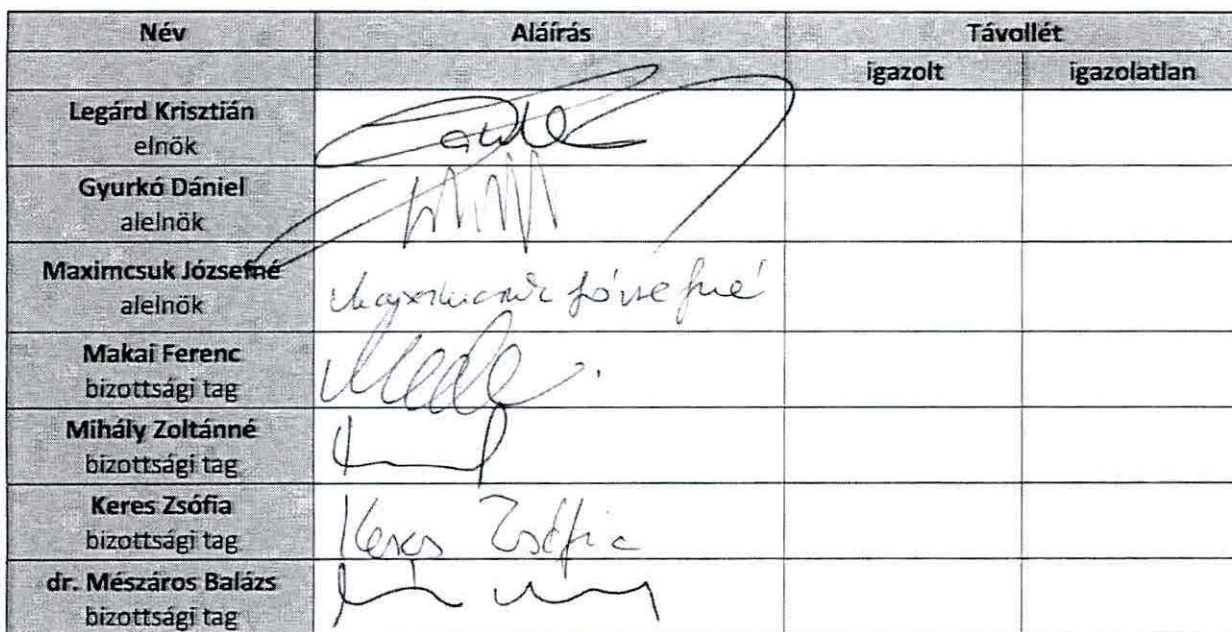 Név Aláírás Távollét
igazolt igazolatlan
Legárd Krisztián
elnök
Gyurkó Dániel
alelnök
Maximcsuk Józsefné
alelnök
Józsefné
Makai Ferenc
bizottsági tag
Mihály Zoltánné
bizottsági tag
Keres Zsófia
bizottsági tag
Keres Zsófia
dr. Mészáros Balázs
bizottsági tag